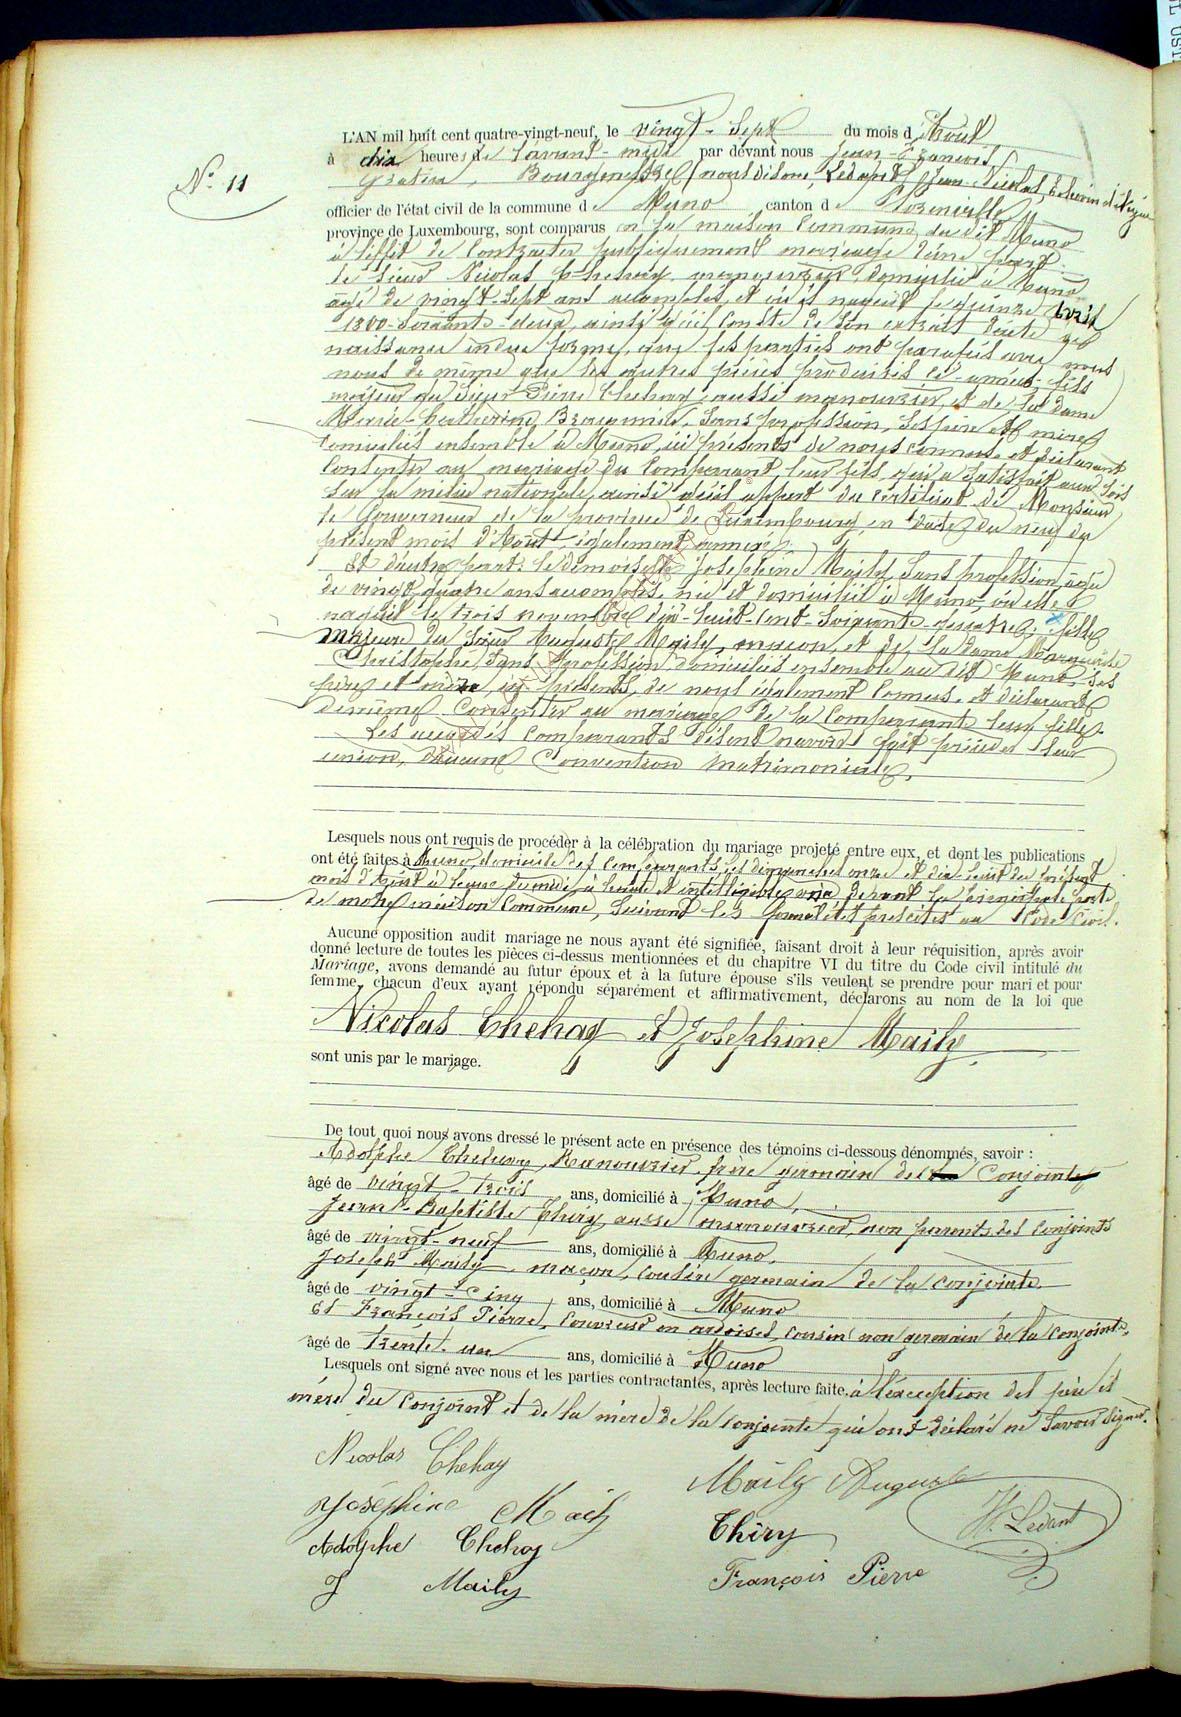 N° 11
L'AN mil huit cent quatre-vingt-neuf, le vingt-sept du mois d'Août
à dix heures de l'avant-midi par devant nous Jean-François
Gratia, Bourgmestre / nous disons, Ledant Jean-Nicolas, Echevin délégué
officier de l'état civil de la commune de Muno canton de Florenville
province de Luxembourg, sont comparus en la maison Commune du dit Muno
à l'effet de contracter publiquement mariage d'une part
le sieur Nicolas Chehay manouvrier, domicilié à Muno
âgé de vingt-sept ans accomplis, et où il naquit le quinze Avril
1800-soixante-deux, ainsi qu'il conste de son extrait d'acte de
naissance en due forme, que les parties ont paraphé avec nous
nous de même que les autres pièces produites ci-annexées fils
majeur du Sieur Pierre Chehay, aussi manouvrier, et de la dame
Marie-Catherine, sans profession, ses père et mère
domiciliés ensemble à Muno, ici présents de nous connus, et déclarant
Consentir au mariage du Comparant, leur fils, qui a satisfait aux lois
sur la milice nationale, ainsi qu'il appert du certificat de Monsieur
le Gouverneur de la province de Luxembourg en date du neuf du
présent mois d'Août également annexé;
Et d'autre part: la demoiselle Joséphine Maily, sans profession, âgée
de vingt-quatre ans accomplis, née et domiciliée à Muno, où elle
naquit le trois novembre dix-huit-cent-soixante-quatre; fille
Majeure du Sieur Auguste Maily, maçon, et de la dame Marguerite
Christophe, sans profession, domiciliés ensemble au dit Muno, ses
père et mère, ici présents, de nous également Connus, et déclarant
de même Consentir au mariage de la Comparante leur fille.
Les susdits comparants disent n'avoir fait précéder leur
union, d'aucune Convention Matrimoniale.
Lesquels nous ont requis de procéder à la célébration du mariage projeté entre eux, et dont les publications
ont été faites à Muno, domicile des Comparants, les dimanches onze et dix-huit du présent
mois d'Août à l'heure de midi, à haute et intelligible voix devant la principale porte
de notre maison Commune, suivant les formalités prescrites au Code Civil.
Aucune opposition audit mariage ne nous ayant été signifiée, faisant droit à leur réquisition, après avoir
donné lecture de toutes les pièces ci-dessus mentionnées et du chapitre VI du titre du Code civil intitulé du
Mariage, avons demandé au futur époux et à la future épouse s'ils veulent se prendre pour mari et pour
femme, chacun d'eux ayant répondu séparément et affirmativement, déclarons au nom de la loi que
Nicolas Chehay et Joséphine Maily
sont unis par le mariage.
De tout quoi nous avons dressé le présent acte en présence des témoins ci-dessous dénommés, savoir :
Adolphe Chehay, Manouvrier, frère germain de Conjoint
âgé de vingt-trois ans, domicilié à Muno,
Jean-Baptiste Thiry, aussi manouvrier, non parent des Conjoints
âgé de vingt-neuf ans, domicilié à Muno,
Joseph Maily, maçon, cousin germain de la conjointe
âgé de vingt-cinq ans, domicilié à Muno
et François Pierre, couvreur en ardoises, cousin non germain de la conjointe,
âgé de trente-un ans, domicilié à Muno
Lesquels ont signé avec nous et les parties contractantes, après lecture faite, à l'exception des père et
mère du conjoint et de la mère de la conjointe qui ont déclaré ne savoir signer.
Nicolas Chehay
Maily Auguste
Joséphine Maily
N. Ledant
Adolphe Chehay
Thiry
J Maily
François Pierre